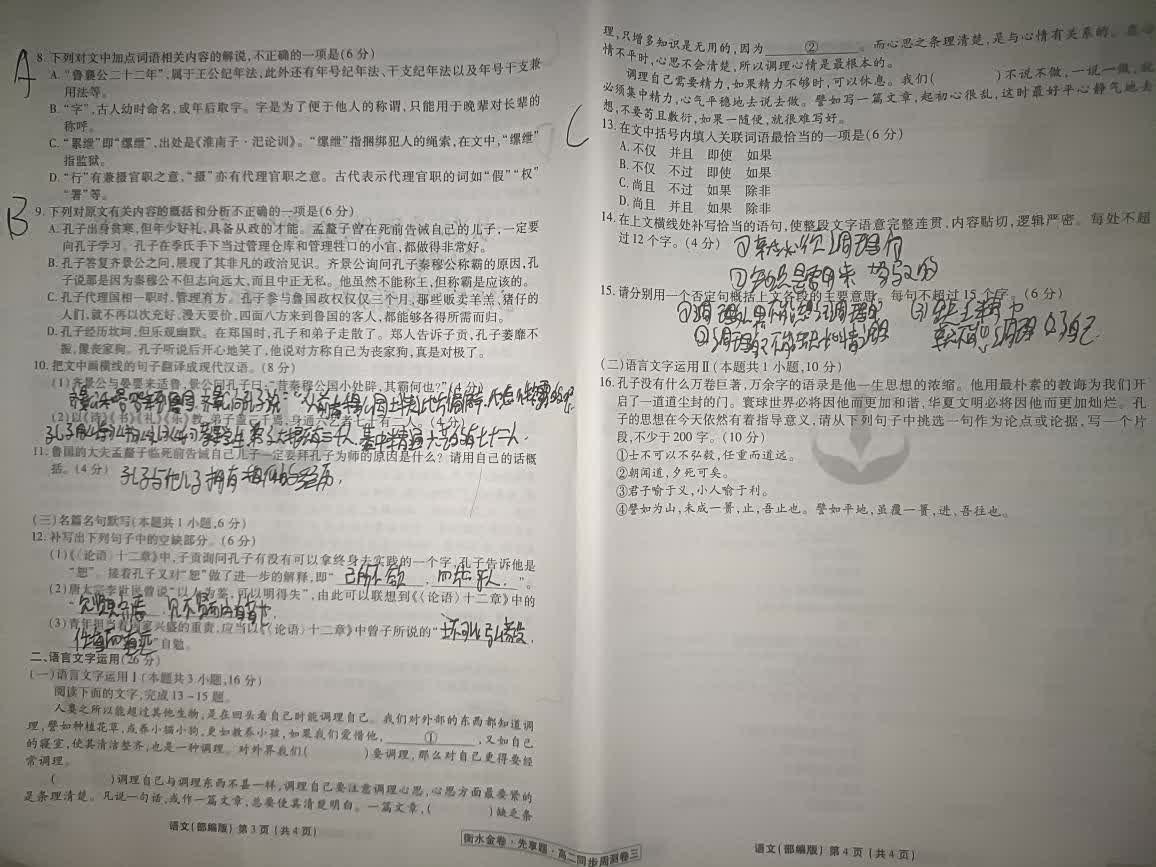 A
8. 下列对文中加点词语相关内容的解说,不正确的一项是(6 分)
A. “鲁襄公二十二年”,属于王公纪年法,此外还有年号纪年法、干支纪年法以及年号干支兼
用法等。
B. “字”,古人幼时命名,成年后取字。字是为了便于他人的称谓,只能用于晚辈对长辈的
称呼。
C. “累绁”即“缧绁”,出处是《淮南子·汜论训》。“缧绁”指捆绑犯人的绳索,在文中,“缧绁”
指监狱。
D. “行”有兼摄官职之意,“摄”亦有代理官职之意。古代表示代理官职的词如“假”“权”
“署”等。
B
9. 下列对原文有关内容的概括和分析不正确的一项是(6 分)
A. 孔子出身贫寒,但年少好礼,具备从政的才能。孟釐子曾在死前告诫自己的儿子,一定要
向孔子学习。孔子在季氏手下当过管理仓库和管理牲口的小官,都做得非常好。
B. 孔子答复齐景公之问,展现了其非凡的政治见识。齐景公询问孔子秦穆公称霸的原因,孔
子说那是因为秦穆公不但志向远大,而且中正无私。他虽然不能称王,但称霸是应该的。
C. 孔子代理国相一职时,管理有方。孔子参与鲁国政权仅仅三个月,那些贩卖羊羔、猪仔的
人们,就不再以次充好、漫天要价,四面八方来到鲁国的客人,都能够各得所需而归。
D. 孔子经历坎坷,但乐观幽默。在郑国时,孔子和弟子走散了。郑人告诉子贡,孔子萎靡不
振,像丧家狗。孔子听说后开心地笑了,他说对方称自己为丧家狗,真是对极了。
10. 把文中画横线的句子翻译成现代汉语。(8 分)
(1)齐景公与晏婴来适鲁,景公问孔子曰:“昔秦穆公国小处辟,其霸何也?”(4 分)
(2)以《诗》《书》《礼》《乐》教,弟子盖三千焉,身通六艺者七十有二人。(4 分)
11. 鲁国的大夫孟釐子临死前告诫自己儿子一定要拜孔子为师的原因是什么?请用自己的话概
括。(4 分)
孔子与他儿子拥有相似的经历.
(三)名篇名句默写(本题共 1 小题,6 分)
12. 补写出下列句子中的空缺部分。(6 分)
(1)《〈论语〉十二章》中,子贡询问孔子有没有可以拿终身去实践的一个字,孔子告诉他是
“恕”。接着孔子又对“恕”做了进一步的解释,即“ 己所不欲 , 勿施于人 . ”。
(2)唐太宗李世民曾说“以人为鉴,可以明得失”,由此可以联想到《〈论语〉十二章》中的
“见贤思齐焉 见不贤而内自省也
(3)青年担当着国家兴盛的重责,应当以《〈论语〉十二章》中曾子所说的“ 士不可以不弘毅 ,
任重而道远 ”自勉。
二、语言文字运用(26 分)
(一)语言文字运用Ⅰ(本题共 3 小题,16 分)
阅读下面的文字,完成 13-15 题。
人类之所以能超过其他生物,是在回头看自己时能调理自己。我们对外部的东西都知道调
理,譬如种植花草,或养小猫小狗,更如教养小孩,如果我们爱惜他, ① ,又如自己
的寝室,使其清洁整齐,也是一种调理。对外界我们( )要调理,那么对自己更得要经
常调理。
( )调理自己与调理东西不甚一样,调理自己要注意调理心思,心思方面最要紧的
是条理清楚。凡说一句话,或作一篇文章,总要使其清楚明白。一篇文章,( )缺乏条
语文(部编版) 第 3 页 (共 4 页)
衡水金卷·先享题·高二同步周测卷三
理,只增多知识是无用的,因为 ② 。而心思之条理清楚,是与心情有关系的。
情不平时,心思不会清楚,所以调理心情是最根本的。
调理自己需要精力,如果精力不够时,可以休息。我们( )不说不做,一说一做,就
必须集中精力,心气平稳地去说去做。譬如写一篇文章,起初心很乱,这时最好平心静气地去
想,不要苟且敷衍,如果一随便,就很难写好。
C
13. 在文中括号内填入关联词语最恰当的一项是(6 分)
A. 不仅 并且 即使 如果
B. 不仅 不过 即使 如果
C. 尚且 不过 如果 除非
D. 尚且 并且 如果 除非
14. 在上文横线处补写恰当的语句,使整段文字语意完整连贯,内容贴切,逻辑严密。每处不超
过 12 个字。(4 分)
15. 请分别用一个否定句概括上文各段的主要意思。每句不超过 15 个字。(6 分)
(二)语言文字运用Ⅱ(本题共 1 小题,10 分)
16. 孔子没有什么万卷巨著,万余字的语录是他一生思想的浓缩。他用最朴素的教诲为我们开
启了一道道尘封的门。寰球世界必将因他而更加和谐,华夏文明必将因他而更加灿烂。孔
子的思想在今天依然有着指导意义,请从下列句子中挑选一句作为论点或论据,写一个片
段,不少于 200 字。(10 分)
①士不可以不弘毅,任重而道远。
②朝闻道,夕死可矣。
③君子喻于义,小人喻于利。
④譬如为山,未成一篑,止,吾止也。譬如平地,虽覆一篑,进,吾往也。
语文(部编版) 第 4 页 (共 4 页)